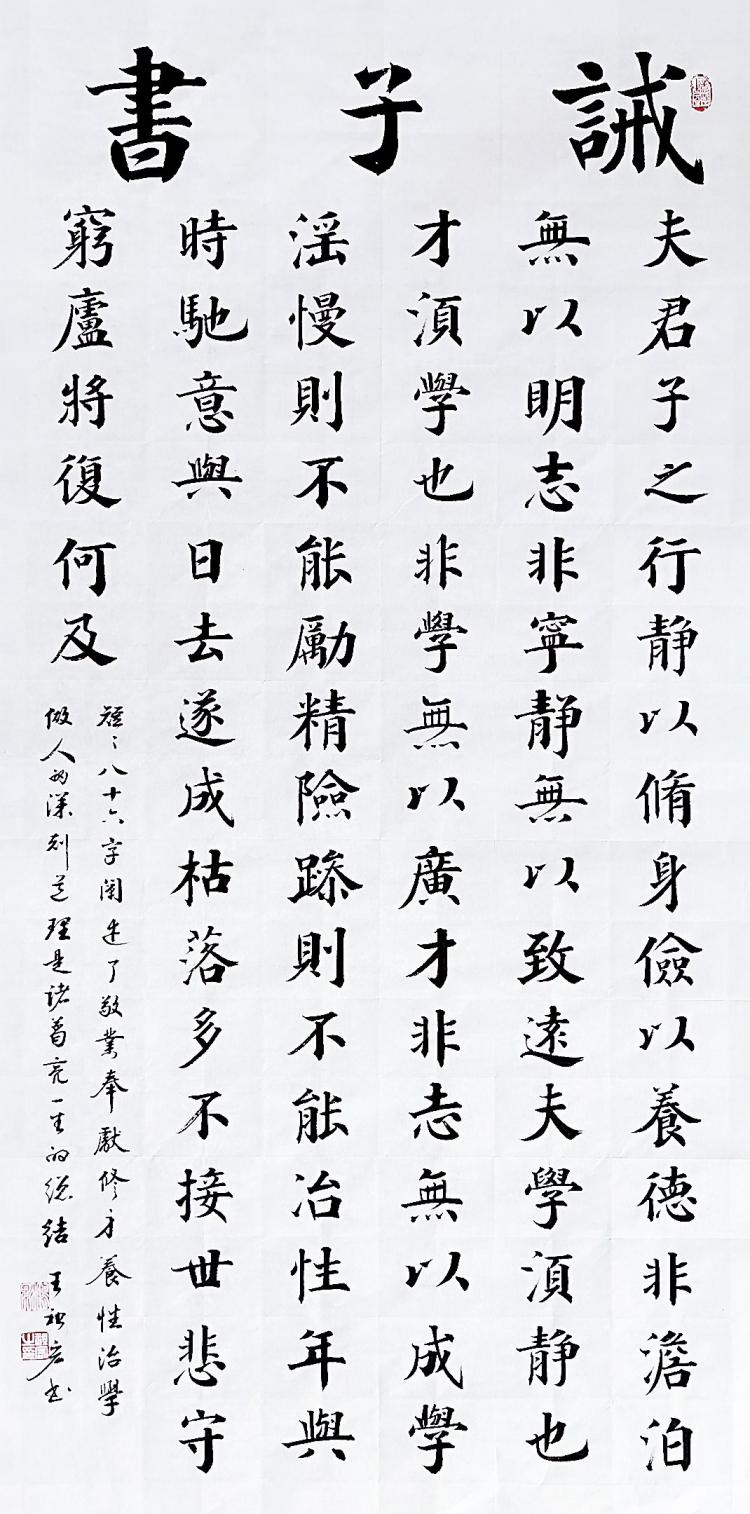 誡子書
夫君子之行静以脩身儉以養德非澹泊
無以明志非寧静無以致遠夫學湏静也
才湏學也非學無以廣才非志無以成學
滛慢則不能勵精險躁則不能冶性年與
時馳意與日去遂成枯落多不接世悲守
窮廬將復何及
短〻八十六字阐述了敬業奉獻修身養性治學
做人的深刻道理是诸葛亮一生的總结 王 書